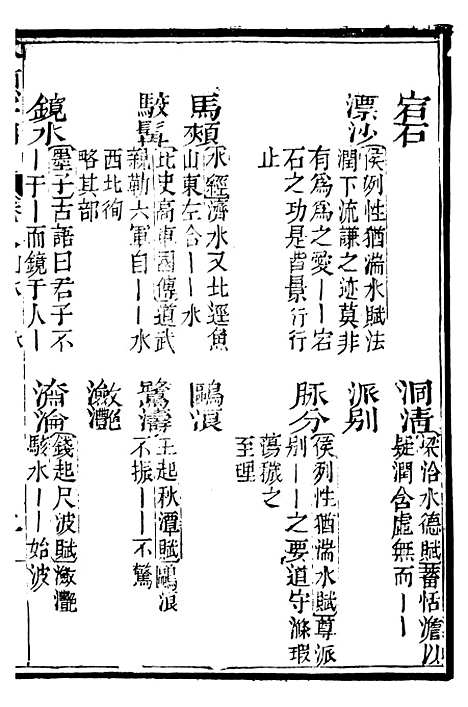 宕石
漂沙
侯列性猶湍水賦法
潤下流謙之迹莫非
有為為之愛丨丨宕
石之功是皆景行行
止
馬頰
水經濟水又北逕魚
山東左合丨丨水
駮髯
北史高車國傳道武
親勒六軍自丨丨水
西北徇
略其部
鏡水
墨子古語曰君子不
丨于丨而鏡于人丨
洞清
梁洽水德賦蓄恬澹以
疑潤含虛無而丨丨
派别
脉分
侯列性猶湍水賦尊派
别丨丨之要道守滌瑕
蕩穢之
至理
鷗浪
驚濤
王起秋潭賦鷗浪
不振丨丨不驚
瀲灔
淪
錢起尺波賦瀲灔
駭水丨丨始波